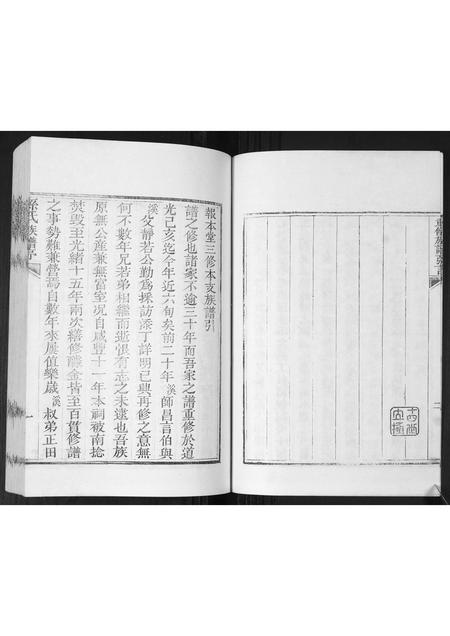 報本堂三修本支族譜引
譜之修也諸家不逾三十年而吾家之譜重修於道
光己亥迄今年近六旬矣前二十年溪師昌言伯與
溪父靜若公勤為採訪添丁詳明已與再修之意無
何不數年兄若弟相繼而逝恨有志之未逮也吾族
原無公產兼無富室况自咸豐十一年本祠被南捻
焚毀至光緒十五年兩次繕修醵金皆至百貫修譜
之事勢難兼營焉自數年來屢值樂歲溪叔弟正田
氏族譜序
一
重修族譜
二